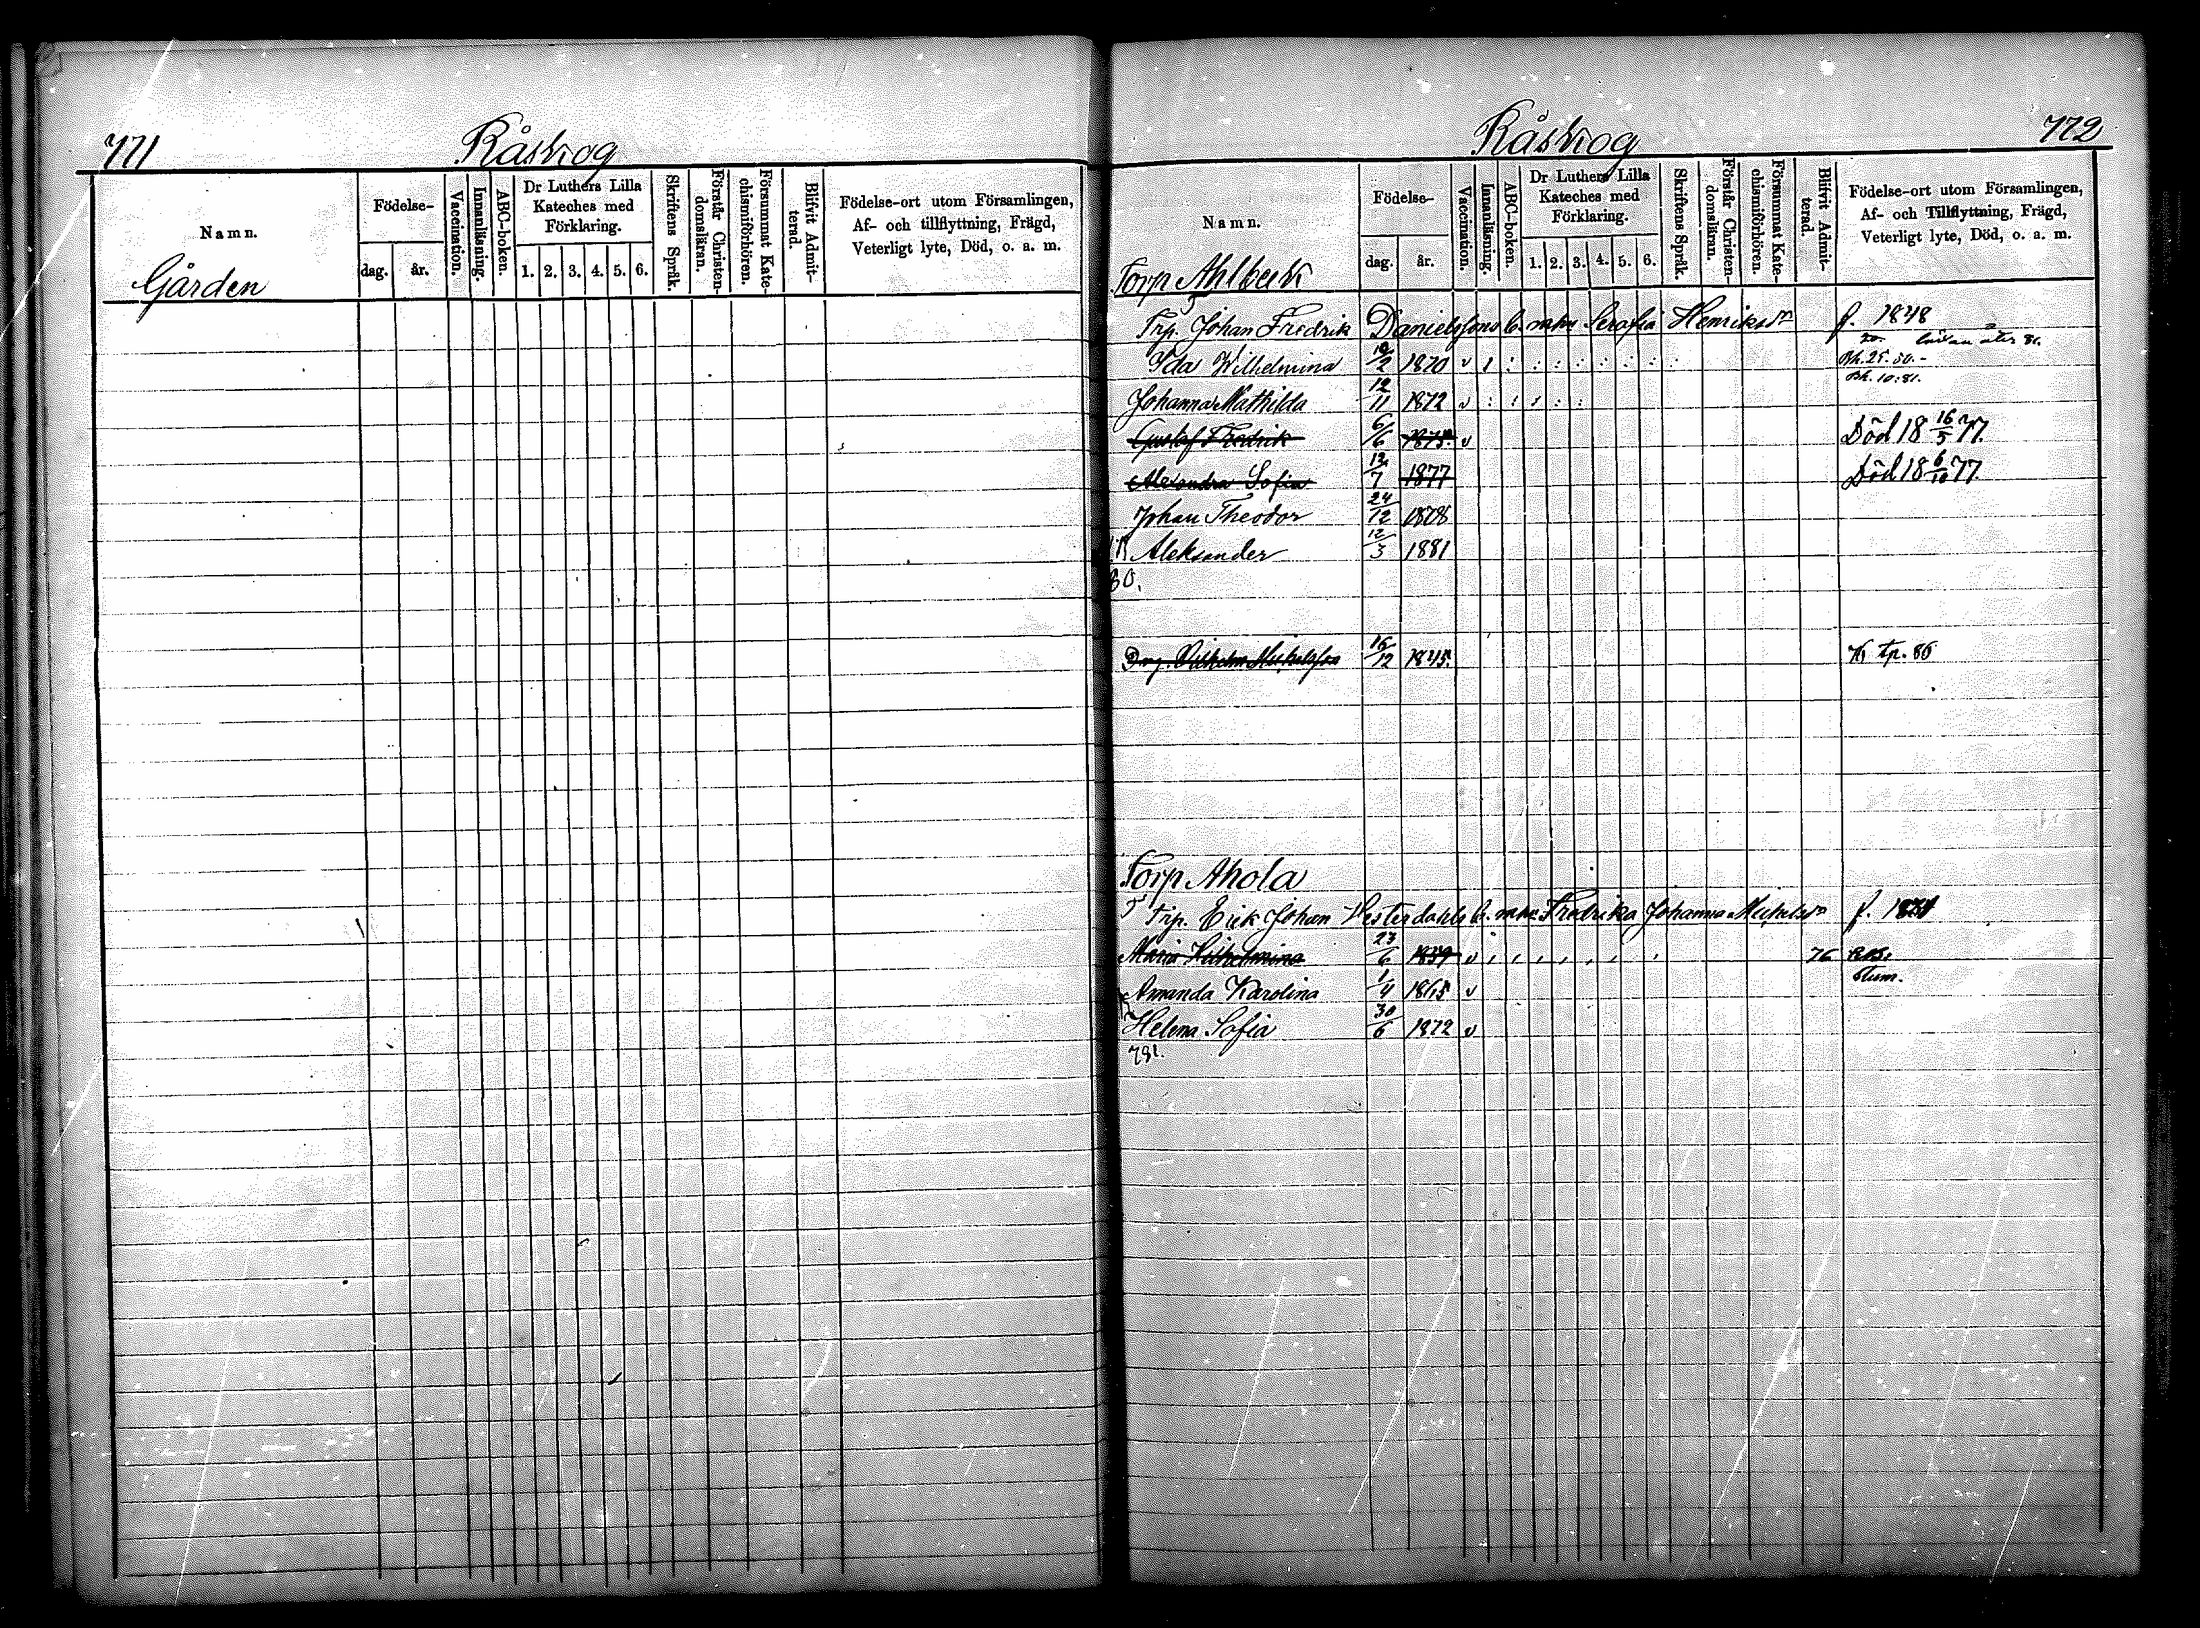 771
Råskog
Namn.
Födelse-
dag.
år.
Vaccination.
Innanläsning.
ABC-boken.
Dr Luthers Lilla
Kateches med
Förklaring.
1. 2. 3. 4. 5. 6.
Skriftens Språk.
Förstår Christen-
domsläran.
Försummat Kate-
chismiförhören.
Blifvit Admit-
terad.
Födelse-ort utom Församlingen,
Af- och tillflyttning, Frägd,
Veterligt lyte, Död, o. a. m.
Gården
Råskog
772
Namn.
Födelse-
dag.
år.
Vaccination.
Innanläsning.
ABC-boken.
Dr Luthers Lilla
Kateches med
Förklaring.
1. 2. 3. 4. 5. 6.
Skriftens Språk.
Förstår Christen-
domsläran.
Försummat Kate-
chismiförhören.
Blifvit Admit-
terad.
Födelse-ort utom Församlingen,
Af- och Tillflyttning, Frägd,
Veterligt lyte, Död, o. a. m.
Torp Ahlbeck
Trp. Johan Fredrik Danielssons b. m. hu Serafia Henriksdr f. 1848
Ida Wilhelmina 1870 v
Bk. 10:81.
Johanna Mathilda 12/11 1872 v
Gustaf Fredrik 6/6 1875 v Död 18 16/5 77.
Alexandra Sofia 12/7 1877 Död 18 6/10 77.
Johan Theodor 24/12 1878
Aleksander 12/3 1881
80.
Drg. Vilhelm Michelsson 16/12 1845. Tp. 86
Torp Ahola
Trp. Erik Johan Westerdahls b. m. hu Fredrika Johanna Michelsdr f.
Maria Wilhelmina 23/6 1859 v 76
Amanda Karolina 1/4 1865 v Stum.
Helena Sofia 30/6 1872 v
781.